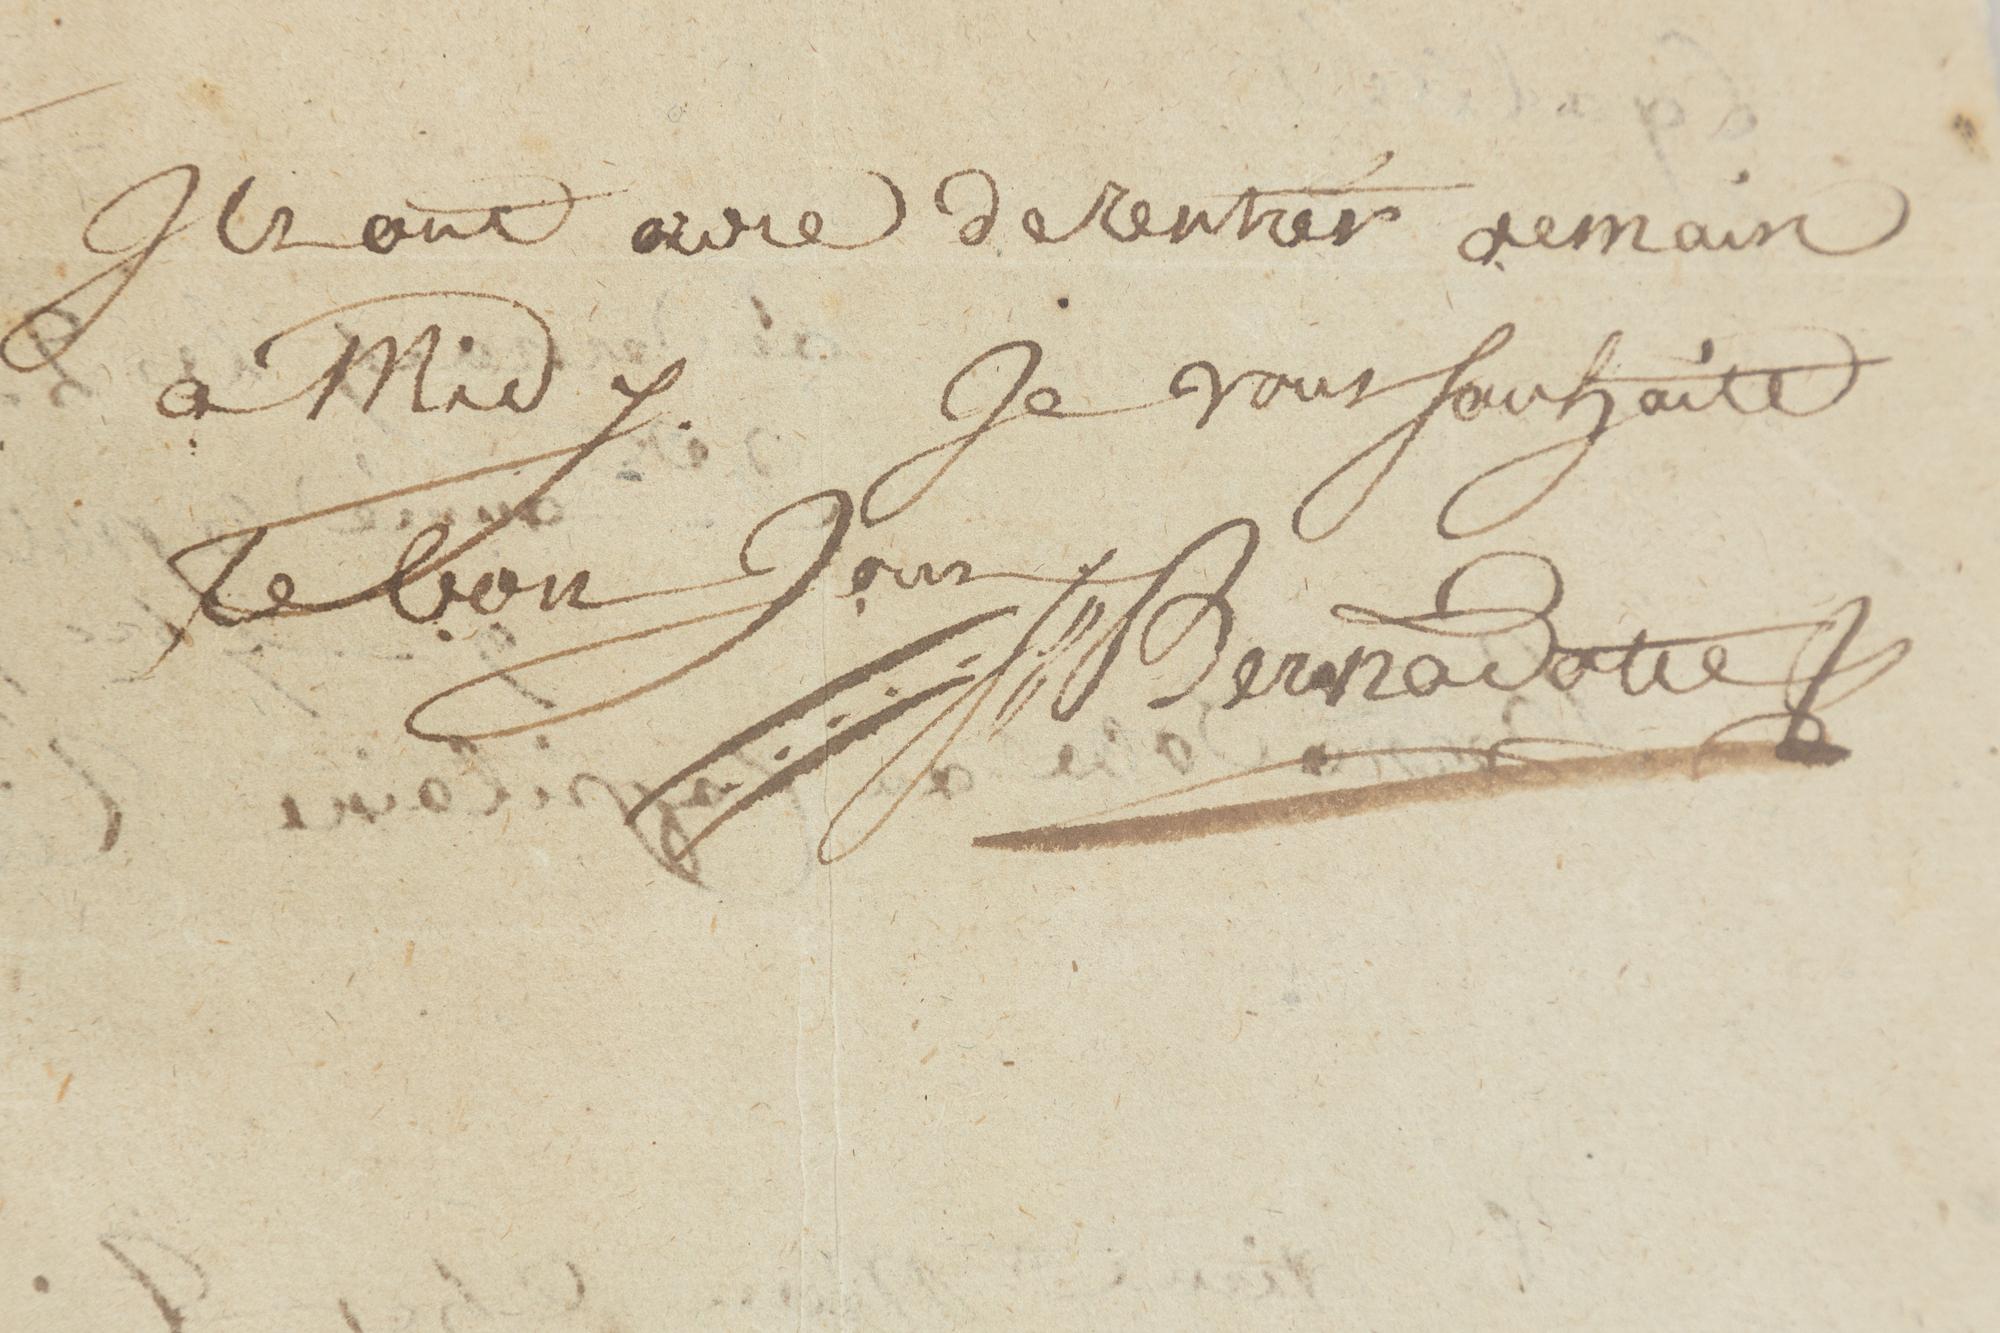 Ils ont ordre de rentrér demain
a Midy. Je vous souhaite
le bon Jour
Bernadotte